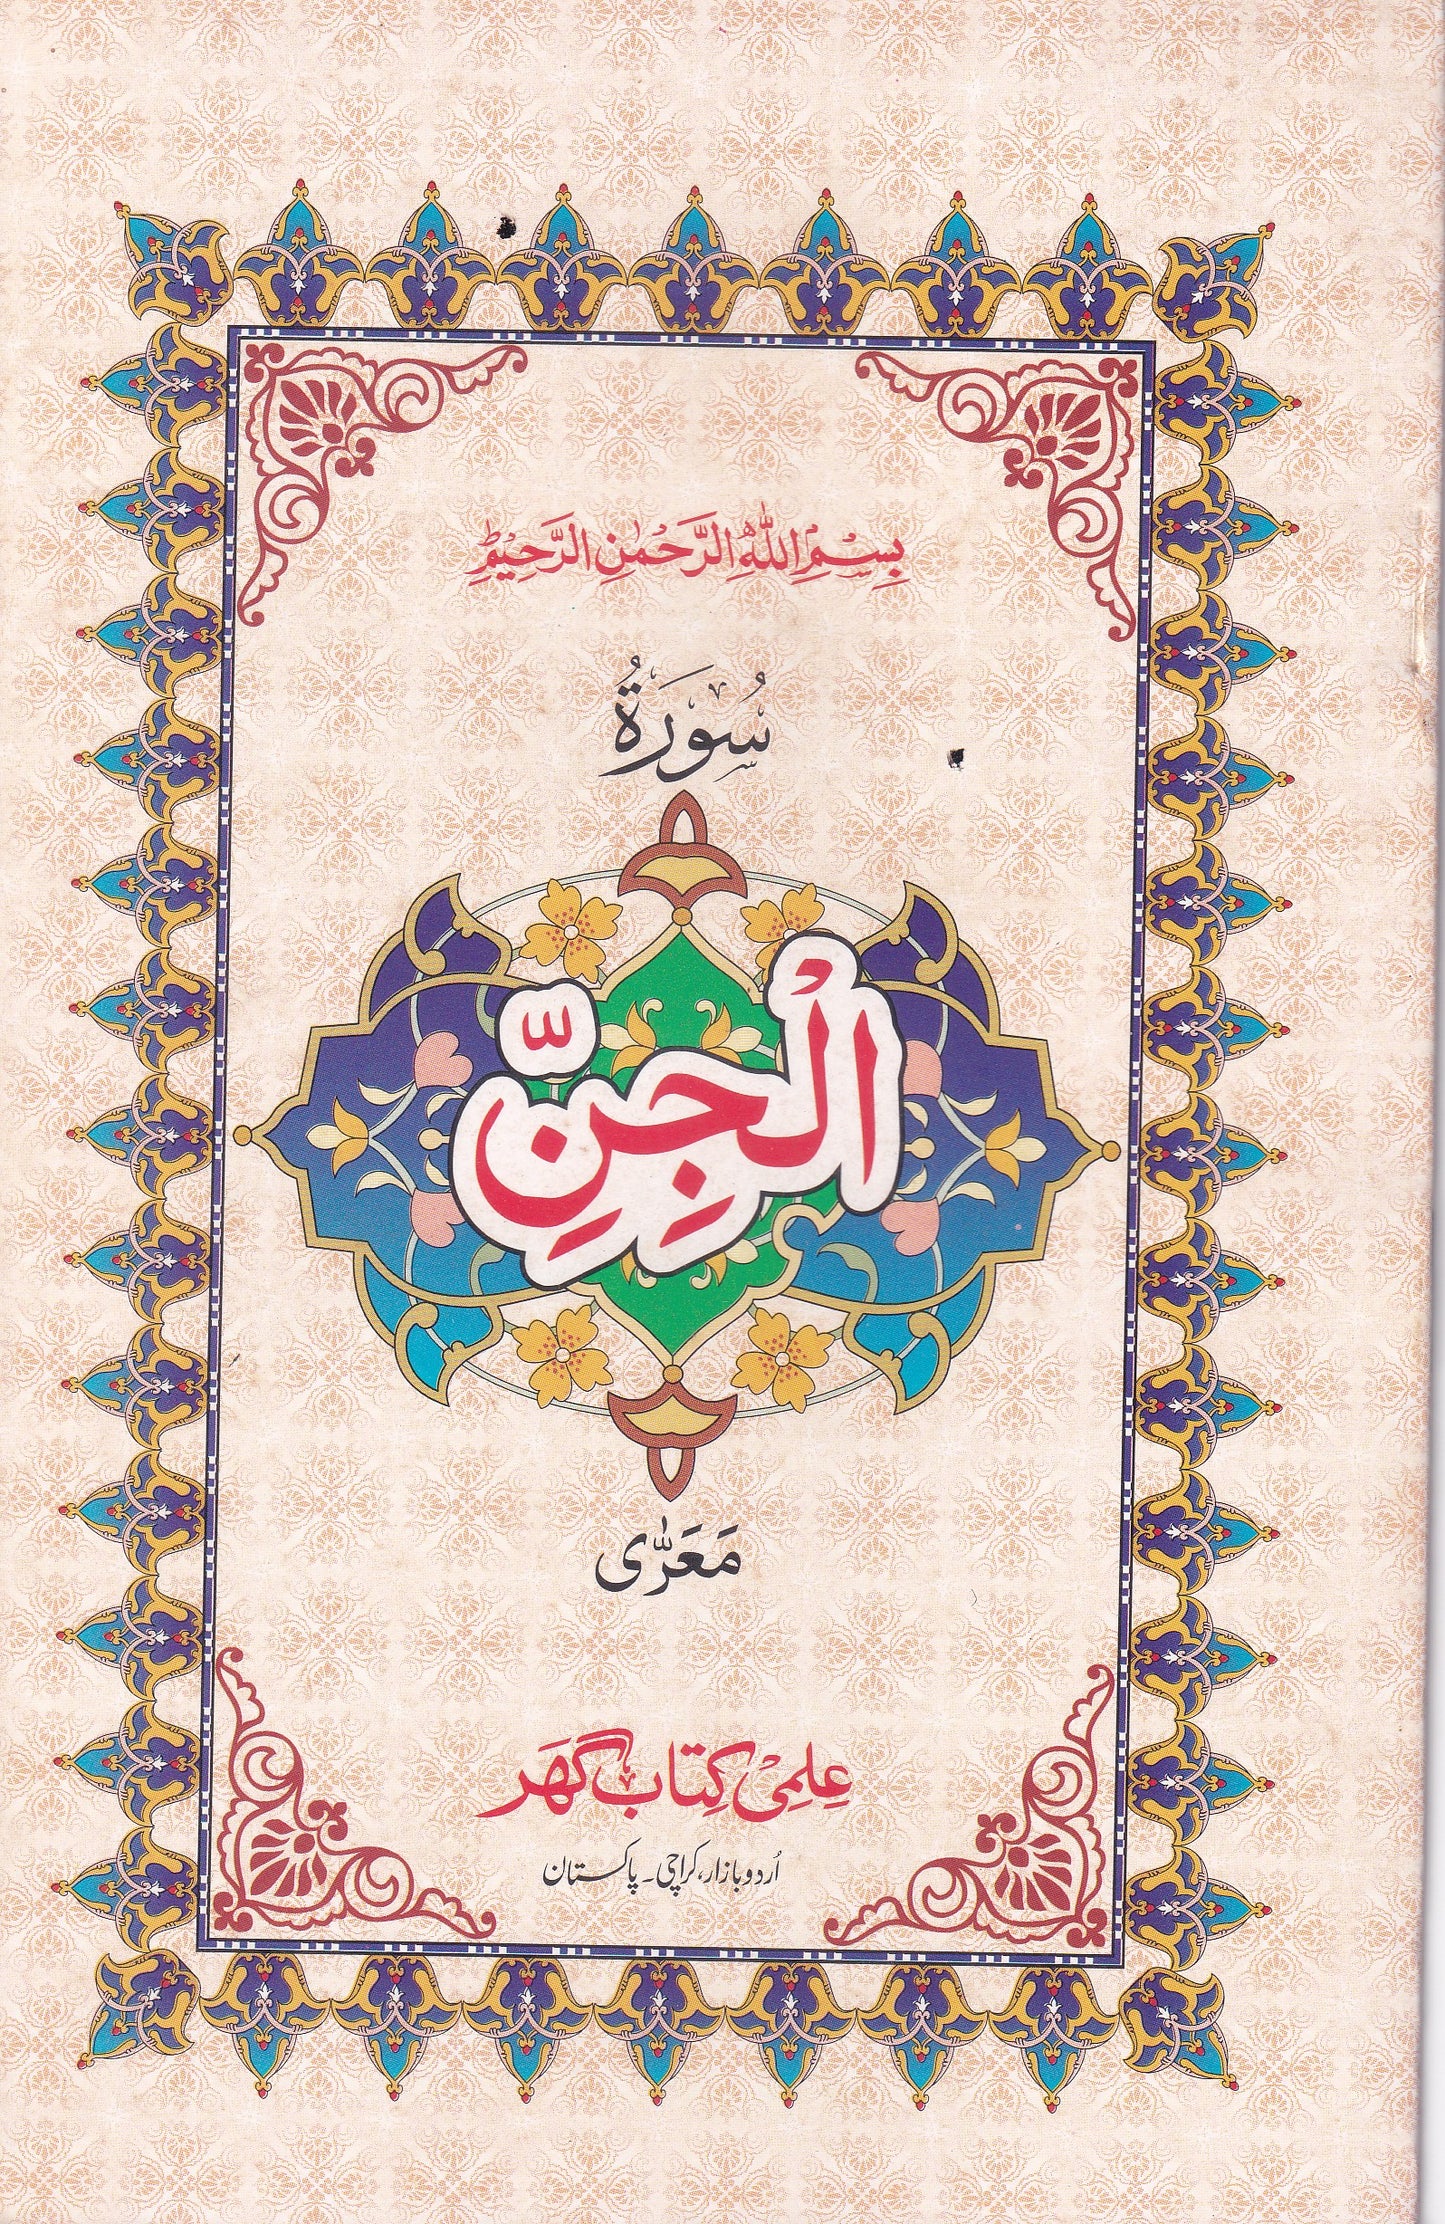 بِسْمِ اللّٰهِ الرَّحْمٰنِ الرَّحِيْمِ
سُوْرَةُ
الْجِنِّ
مَعَرّٰی
عِلمِیْ کِتَاب گھَر
اُردو بازار، کراچی۔ پاکستان